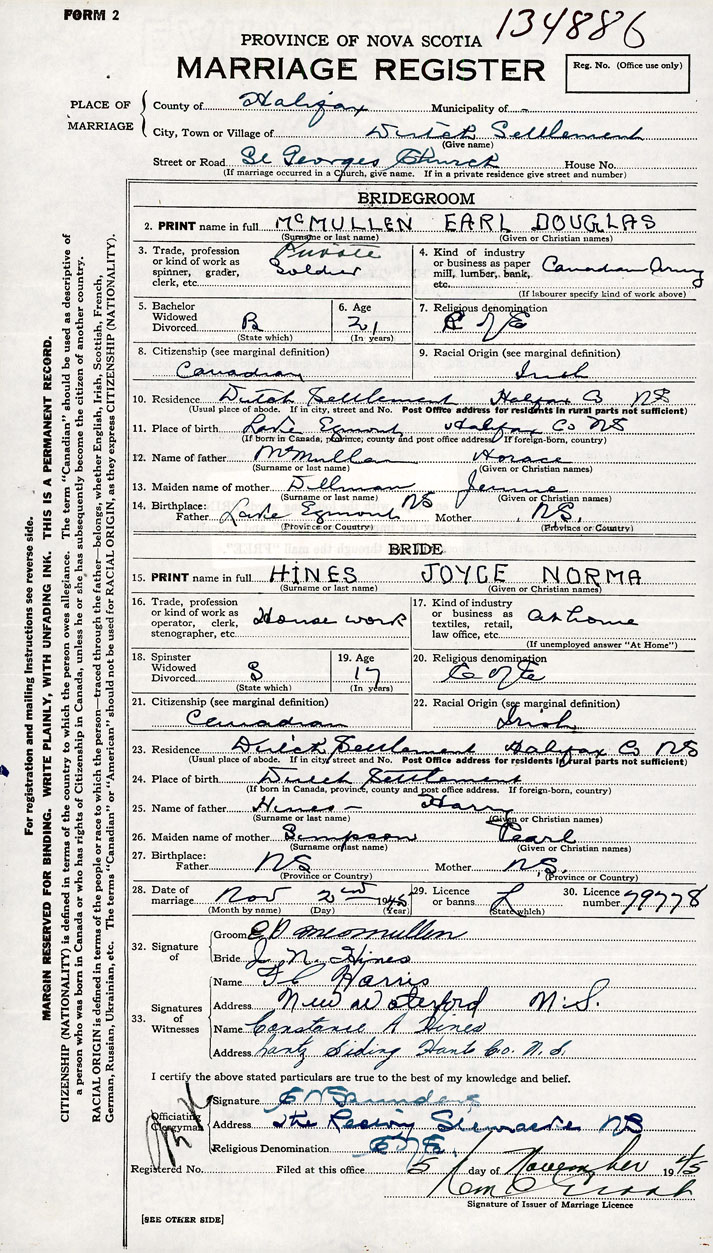 FORM 2
134886
PROVINCE OF NOVA SCOTIA
MARRIAGE REGISTER
Reg. No. (Office use only)
PLACE OF MARRIAGE
County of Halifax Municipality of -
City, Town or Village of Dutch Settlement
(Give name)
Street or Road St Georges Church House No.
(If marriage occurred in a Church, give name. If in a private residence give street and number)
BRIDEGROOM
2. PRINT name in full McMULLEN EARL DOUGLAS
(Surname or last name) (Given or Christian names)
3. Trade, profession or kind of work as spinner, grader, clerk, etc. Private Soldier
4. Kind of industry or business as paper mill, lumber, bank, etc. Canadian Army
(If labourer specify kind of work above)
5. Bachelor Widowed Divorced B
(State which)
6. Age 21
(In years)
7. Religious denomination C of E
8. Citizenship (see marginal definition) Canadian
9. Racial Origin (see marginal definition) Irish
10. Residence Dutch Settlement Halifax Co NS
(Usual place of abode. If in city, street and No. Post Office address for residents in rural parts not sufficient)
11. Place of birth Lake Egmont Halifax Co NS
(If born in Canada, province, county and post office address. If foreign-born, country)
12. Name of father McMullen Horace
(Surname or last name) (Given or Christian names)
13. Maiden name of mother Dillman Jennie
(Surname or last name) (Given or Christian names)
14. Birthplace: Father Lake Egmont NS Mother NS.
(Province or Country) (Province or Country)
BRIDE
15. PRINT name in full HINES JOYCE NORMA
(Surname or last name) (Given or Christian names)
16. Trade, profession or kind of work as operator, clerk, stenographer, etc. House work
17. Kind of industry or business as textiles, retail, law office, etc. at home
(If unemployed answer "At Home")
18. Spinster Widowed Divorced S
(State which)
19. Age 17
(In years)
20. Religious denomination C of E
21. Citizenship (see marginal definition) Canadian
22. Racial Origin (see marginal definition) Irish
23. Residence Dutch Settlement Halifax Co NS
(Usual place of abode. If in city, street and No. Post Office address for residents in rural parts not sufficient)
24. Place of birth Dutch Settlement
(If born in Canada, province, county and post office address. If foreign-born, country)
25. Name of father Hines - Harry
(Surname or last name) (Given or Christian names)
26. Maiden name of mother Simpson Pearl
(Surname or last name) (Given or Christian names)
27. Birthplace: Father NS Mother N.S.
(Province or Country) (Province or Country)
28. Date of marriage Nov 2nd 1945
(Month by name) (Day) (Year)
29. Licence or banns L
(State which)
30. Licence number 79778
32. Signature of
Groom E D McMullen
Bride J. N. Hines
33. Signatures of Witnesses
Name Harris
Address New Waterford N.S.
Name Constance A Hines
Address Lantz Siding Hants Co. N.S.
I certify the above stated particulars are true to the best of my knowledge and belief.
Officiating Clergyman
Signature
Address The Rectory Stewiacke NS
Religious Denomination C of E.
Registered No. Filed at this office 5 day of November 1945
Signature of Issuer of Marriage Licence
[SEE OTHER SIDE]
For registration and mailing instructions see reverse side.
MARGIN RESERVED FOR BINDING. WRITE PLAINLY, WITH UNFADING INK. THIS IS A PERMANENT RECORD.
CITIZENSHIP (NATIONALITY) is defined in terms of the country to which the person owes allegiance. The term "Canadian" should be used as descriptive of
a person who was born in Canada or who has rights of Citizenship in Canada, unless he or she has subsequently become the citizen of another country.
RACIAL ORIGIN is defined in terms of the people or race to which the person—traced through the father—belongs, whether English, Irish, Scottish, French,
German, Russian, Ukrainian, etc. The terms "Canadian" or "American" should not be used for RACIAL ORIGIN, as they express CITIZENSHIP (NATIONALITY).